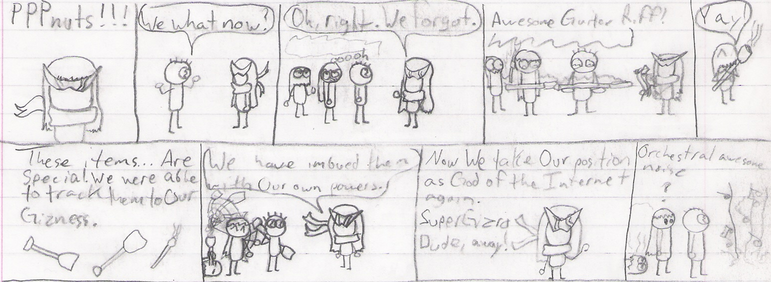 PPPnuts!!!
We what now?
Oh, right. We forgot.
oooh
Awesome Guitar Riff!
Yay!
These items... Are
Special. We were able
to track them to Our
Gizness.
We have imbued them
with Our own powers!
Now We take Our position
as God of the Internet
again.
SuperGizzrd
Dude, away!
Orchestral awesome
noise
?